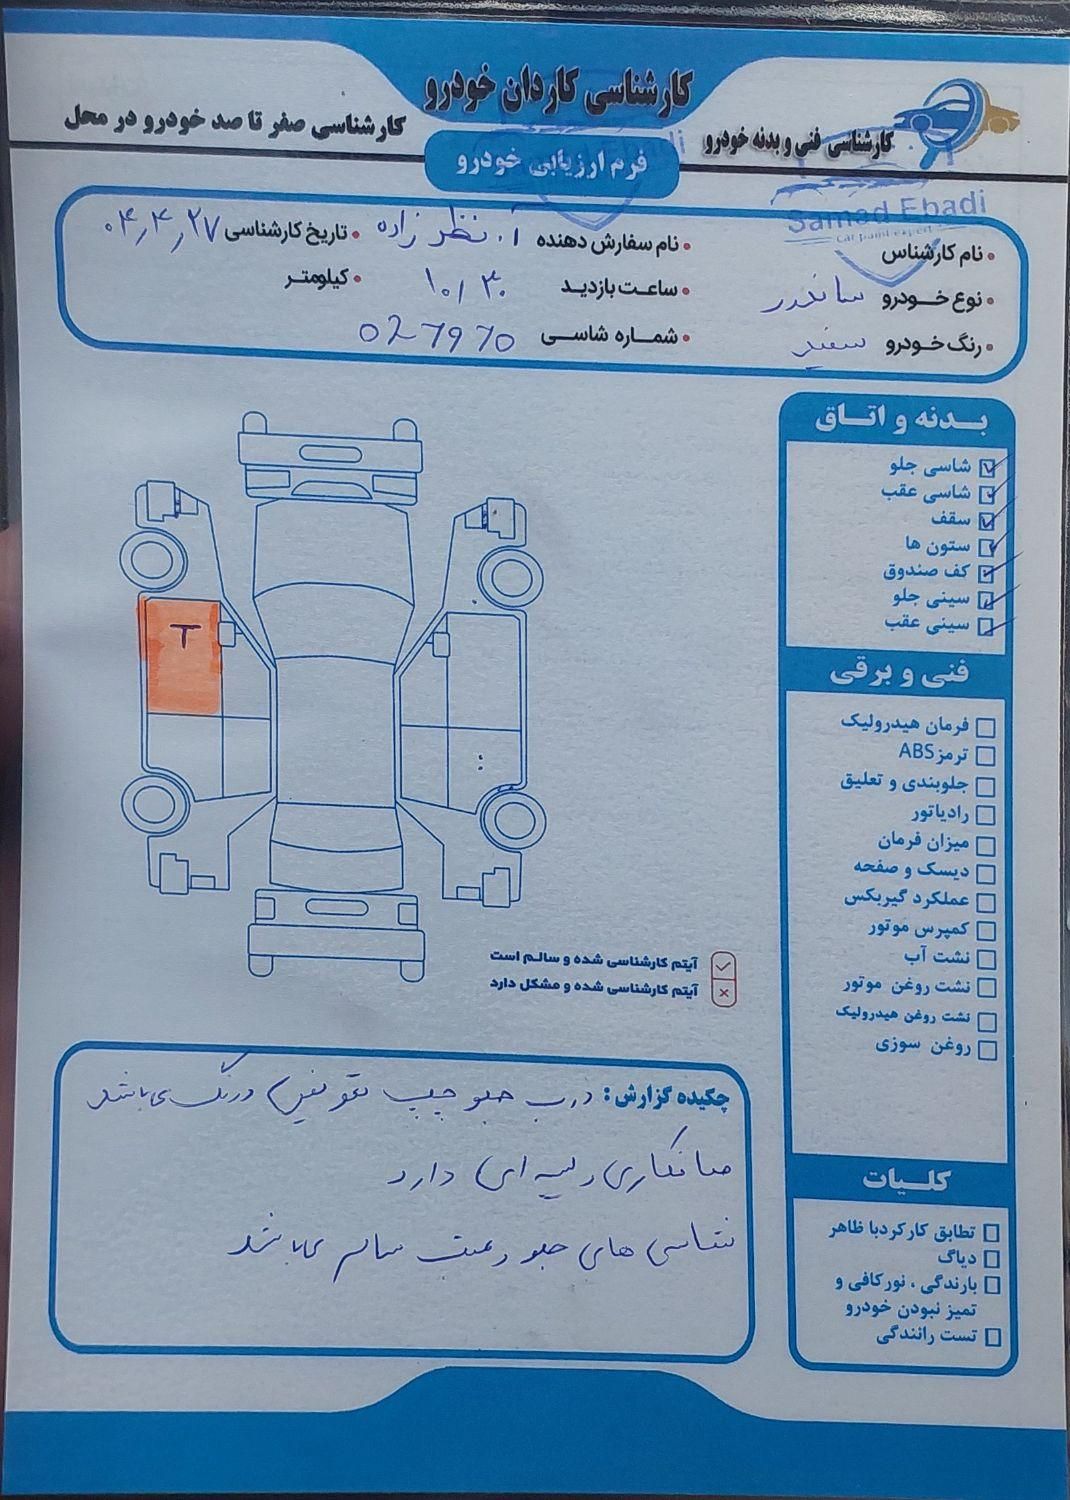 کارشناسی کاردان خودرو
کارشناسی فنی و بدنه خودرو
کارشناسی صفر تا صد خودرو در محل
فرم ارزیابی خودرو
Samad Ebadi
Car paint expert
• نام کارشناس
• نام سفارش دهنده آ. نظر زاده
• تاریخ کارشناسی ۰۴,۴,۲۷
• نوع خودرو ساندرو
• ساعت بازدید ۱۰/۳۰
• کیلومتر
• رنگ خودرو سفید
• شماره شاسی 027970
بدنه و اتاق
شاسی جلو
شاسی عقب
سقف
ستون ها
کف صندوق
سینی جلو
سینی عقب
T
فنی و برقی
فرمان هیدرولیک
ترمز ABS
جلوبندی و تعلیق
رادیاتور
میزان فرمان
دیسک و صفحه
عملکرد گیربکس
کمپرس موتور
نشت آب
نشت روغن موتور
نشت روغن هیدرولیک
روغن سوزی
آیتم کارشناسی شده و سالم است
آیتم کارشناسی شده و مشکل دارد
کلیات
تطابق کارکرد با ظاهر
دیاگ
بارندگی ، نور کافی و
تمیز نبودن خودرو
تست رانندگی
چکیده گزارش: درب جلو چپ تعویض و رنگ می باشد
صافکاری لیسه ای دارد
شاسی های جلو و عقب سالم می باشد